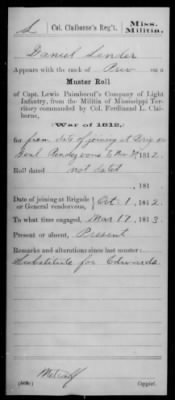 L
Col. Claiborne's Reg't.
Miss.
Militia.
Daniel Lender
Appears with the rank of Priv on a
Muster Roll
of Capt. Lewis Paimbeouf's Company of Light
Infantry, from the Militia of Mississippi Ter-
ritory commanded by Col. Ferdinand L. Clai-
borne,
(War of 1812,)
for from date of joining at Brig or
Genl Rendezvous to Nov 30, 1812.
Roll dated not dated
, 181
Date of joining at Brigade
or General rendezvous, Oct. 1, 1812
To what time engaged, Mar 17, 1813
Present or absent, Present
Remarks and alterations since last muster:
Substitute for Edwards
Metcalf
Copyist.